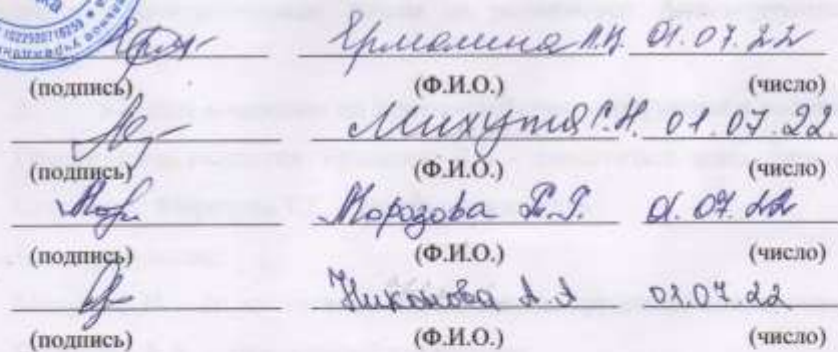 1022500716259
Ермолина Н. 01.07.22
(подпись) (Ф.И.О.) (число)
Михута С.Н. 01.07.22
(подпись) (Ф.И.О.) (число)
Морозова Т.Г. 01.07.22
(подпись) (Ф.И.О.) (число)
Никонова А.А 01.07.22
(подпись) (Ф.И.О.) (число)